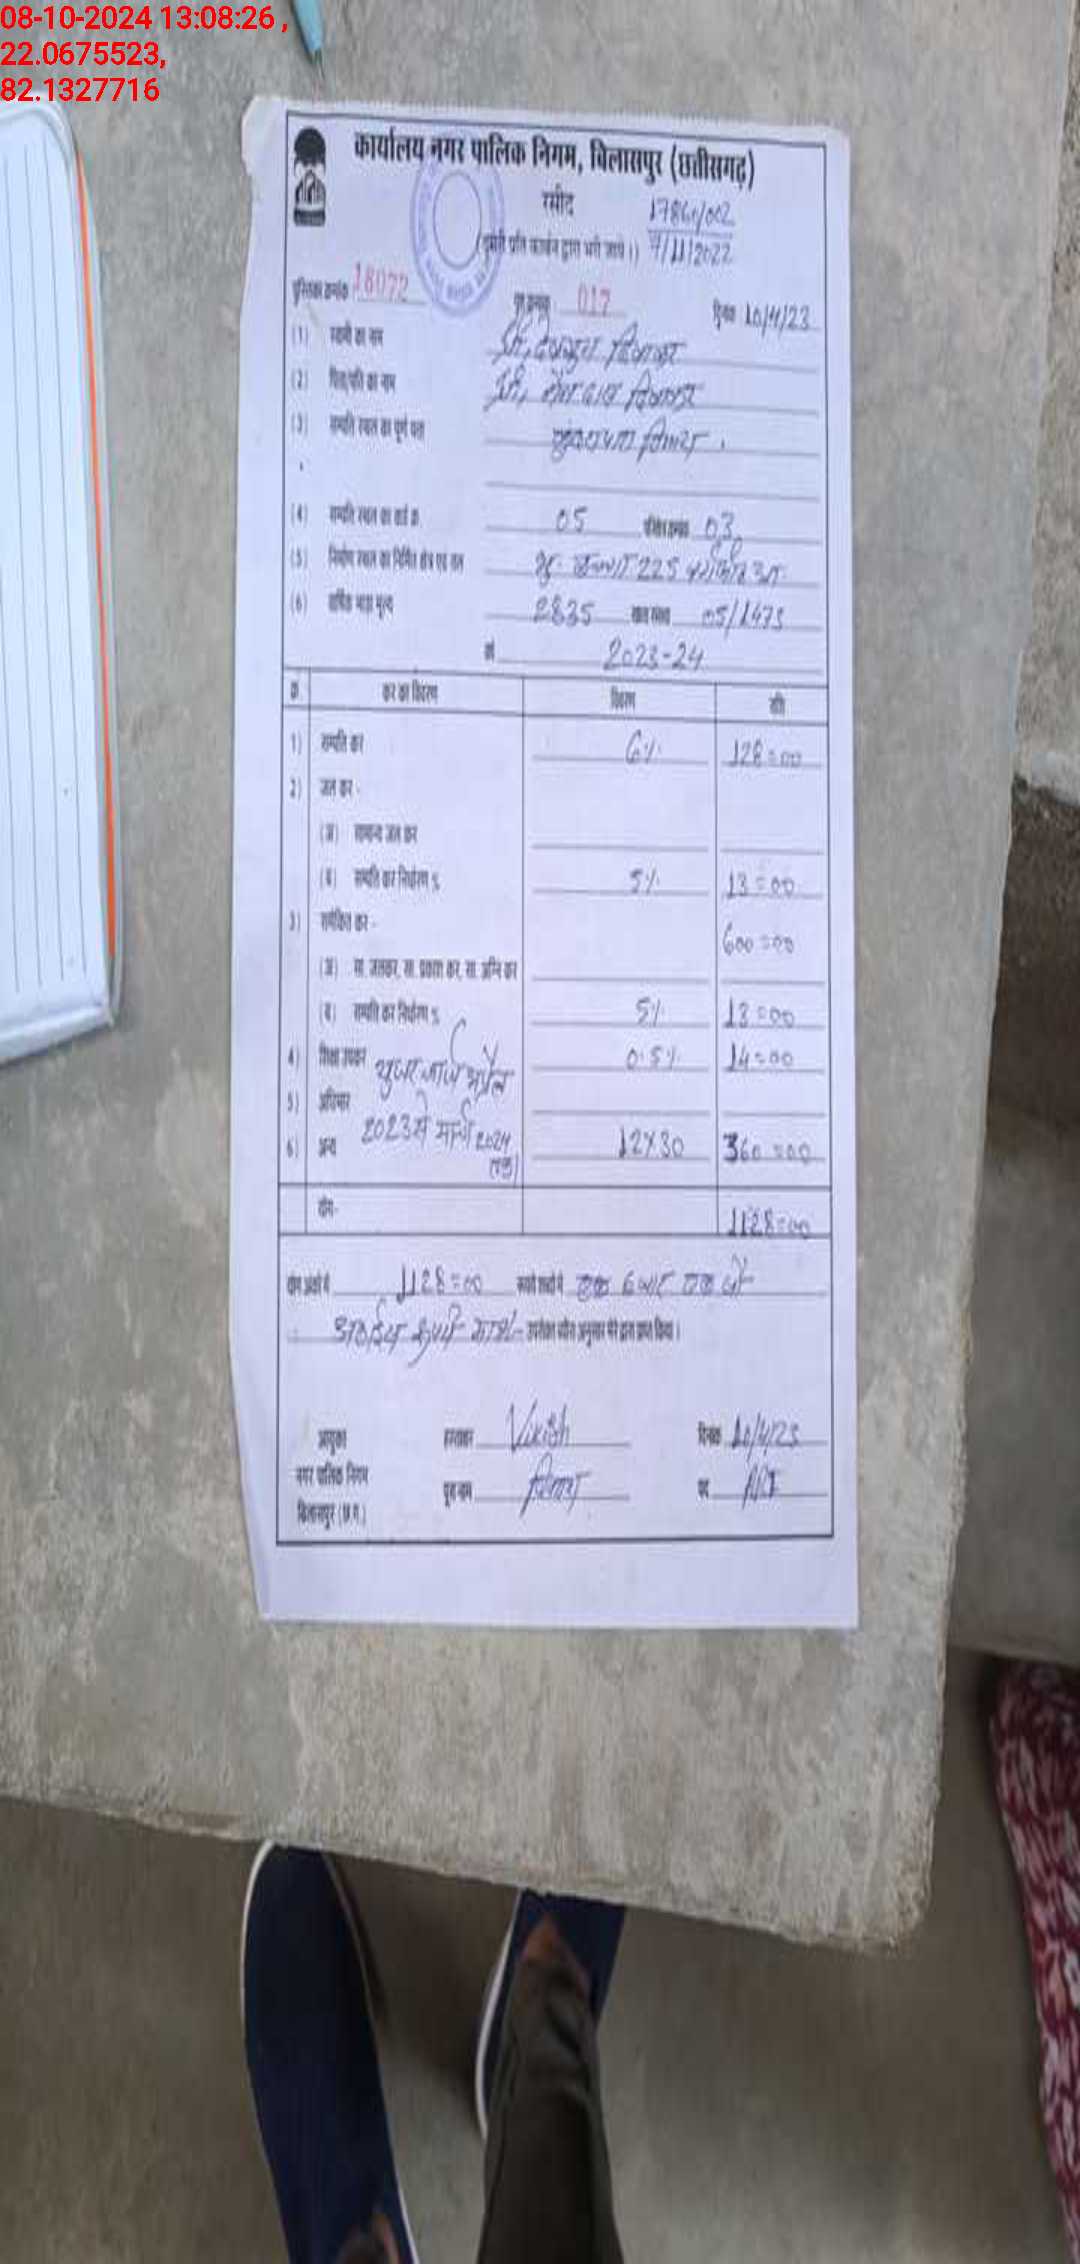 08-10-2024 13:08:26 ,
22.0675523,
82.1327716
कार्यालय नगर पालिक निगम, बिलासपुर (छत्तीसगढ़)
रसीद
17860/002
(दूसरी प्रति कार्बन द्वारा भरी जाये।) 7/11/2022
पुस्तिका क्रमांक 18072 पृष्ठ क्रमांक 017 दिनांक 10/4/23
(1) स्वामी का नाम श्री,
(2) पिता/पति का नाम श्री,
(3) सम्पत्ति स्थल का पूर्ण पता
(4) सम्पत्ति स्थल का वार्ड क्र. 05 03
(5) निर्माण स्थल का निर्मित क्षेत्र एवं तल 225
(6) वार्षिक भाड़ा मूल्य 2835 05/1473
वर्ष 2023-24
क्र. कर का विवरण विवरण राशि
1) सम्पत्ति कर 6% 128=00
2) जल कर -
(अ) सामान्य जल कर
(ब) सम्पत्ति कर निर्धारण % 5% 13=00
3) समेकित कर - 600=00
(अ) सा. जलकर, सा. प्रकाश कर, सा. अग्नि कर
(ब) सम्पत्ति कर निर्धारण % 5% 13=00
4) शिक्षा उपकर 0.5% 14=00
यूजर चार्ज अप्रैल
5) अधिभार
2023 से मार्च 2024
6) अन्य 12X30 360=00
तक।
योग- 1128=00
योग अंकों में 1128=00 रूपये शब्दों में एक हजार एक सौ
अठाईस रूपये मात्र- उपरोक्त ब्यौरा अनुसार मेरे द्वारा प्राप्त किया।
आयुक्त हस्ताक्षर Vikish दिनांक 10/4/23
नगर पालिक निगम पूरा नाम पद
बिलासपुर (छ.ग.)